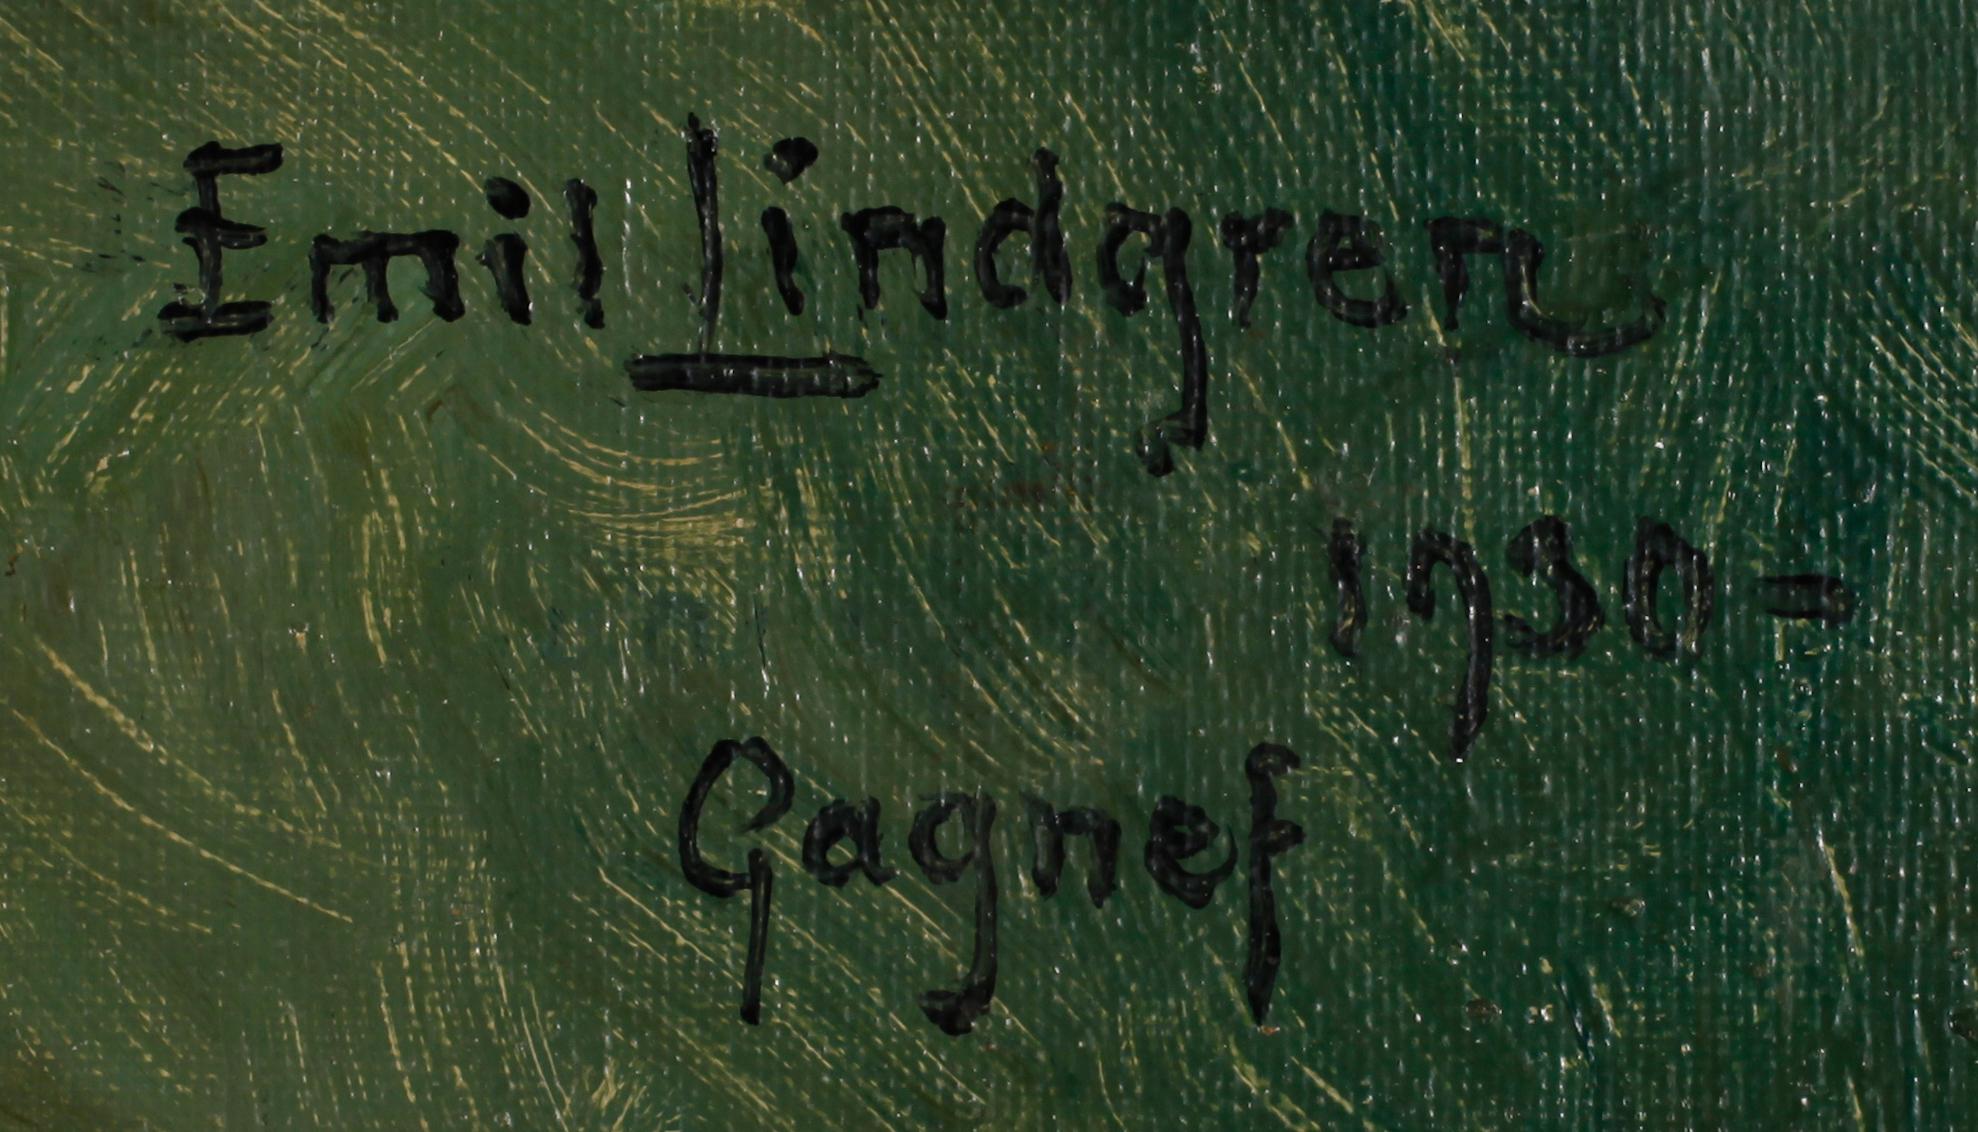 Emil Lindgren
1930-
Gagnef